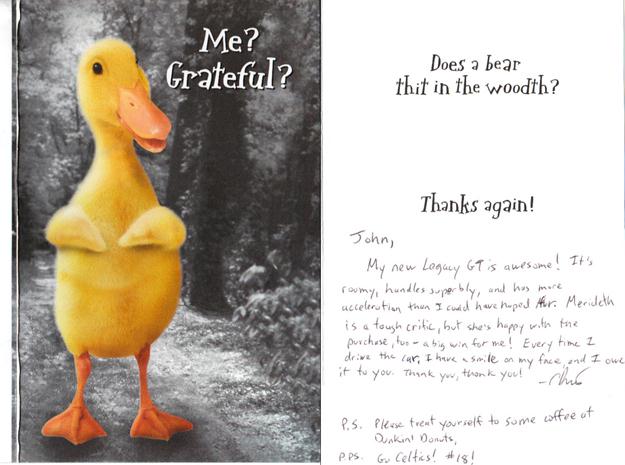 Me?
Grateful?
Does a bear
thit in the woodth?
Thanks again!
John,
My new Legacy GT is awesome! It's
roomy, handles superbly, and has more
acceleration than I could have hoped for. Merideth
is a tough critic, but she's happy with the
purchase, too - a big win for me! Every time I
drive the car, I have a smile on my face, and I owe
it to you. Thank you, thank you! -
P.S. Please treat yourself to some coffee at
Dunkin' Donuts,
P.PS. Go Celtics! #18!